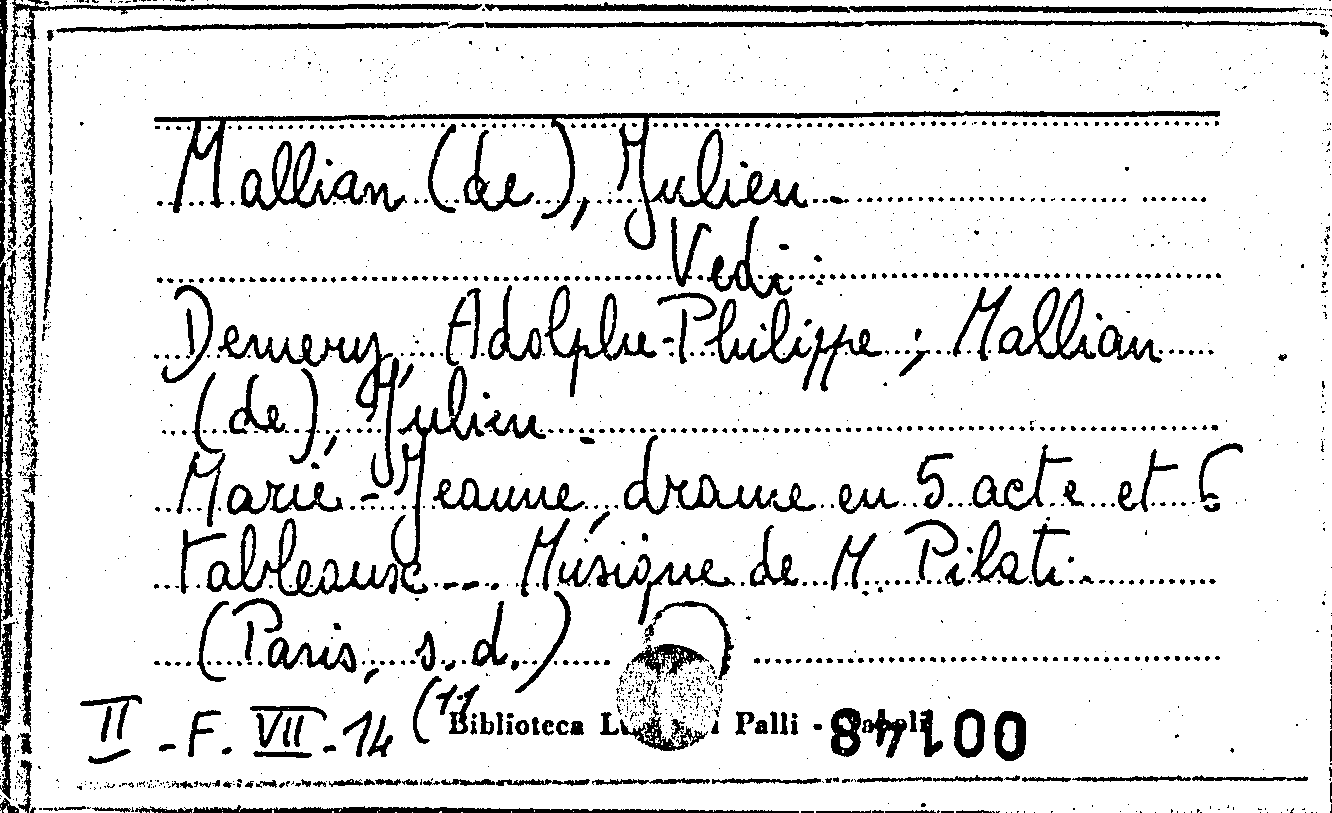 Mallian (de), Julien -
Vedi:
Dennery, Adolphe-Philippe; Mallian
(de), Julien -
Marie-Jeanne, drame en 5 acte et 6
tableaux... Musique de M. Pilati.
(Paris, s.d.)
II - F. VII - 14 (11
Biblioteca Palli - 00148